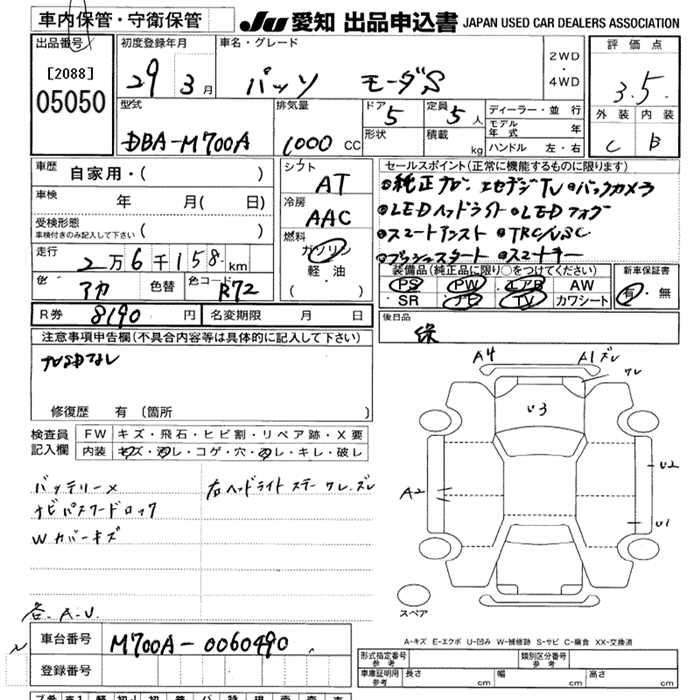 車内保管・守衛保管
JU 愛知 出品申込書 JAPAN USED CAR DEALERS ASSOCIATION
出品番号 初度登録年月 車名・グレード 評価点
[2088] 05050
29 3月 パッソ モーダS 2WD・4WD 3.5
型式 排気量 ドア 5 定員 5人 ディーラー・並行 外装 内装
DBA-M700A 1000 CC 形状 積載 kg モデル年式 年 C B
ハンドル 左・右
車歴 自家用・( ) シフト AT セールスポイント(正常に機能するものに限ります)
車検 年 月( 日) 冷房 AAC
純正ナビ エセグジTV バックカメラ
LEDヘッドライト LEDフォグ
受検形態 車検付きのみ記入して下さい ( ) 燃料 ガソリン
スマートアシスト TRC/VSC
走行 2万6千158km 軽油 ( )
プッシュスタート スマートキー
色 アカ 色替 色コード R72
装備品(純正品に限り○をつけてください) 新車保証書
PS PW エアB AW 有・無
SR ナビ TV カワシート
R券 8190円 名変期限 月 日 後日品
注意事項申告欄(不具合内容等は具体的に記入して下さい)
ナビSDなし
修復歴 有 (箇所 )
A4 A1 ズレ
ワレ
U3
A2
U2
U1
検査員記入欄 FW キズ・飛石・ヒビ割・リペア跡・X要
内装 キズ・汚レ・コゲ・穴・スレ・キレ・破レ
バッテリー× 右ヘッドライトステー ワレ、ズレ
ナビパスワードロック
Wカバーキズ
各 A.U
スペア
A-キズ E-エクボ U-凹み W-補修跡 S-サビ C-腐食 XX-交換済
車台番号 M700A-0060490
登録番号
形式指定番号 参考 類別区分番号 参考
車庫証明用 参考 長さ cm 幅 cm 高さ cm